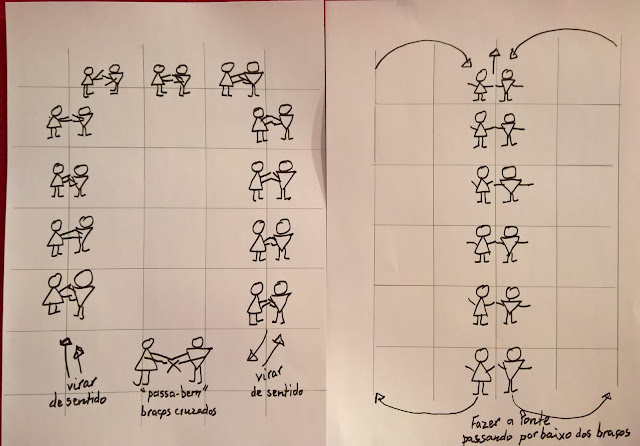 virar
de sentido
"passa-bem"
braços cruzados
virar
de sentido
Fazer a Ponte
passando por baixo dos braços